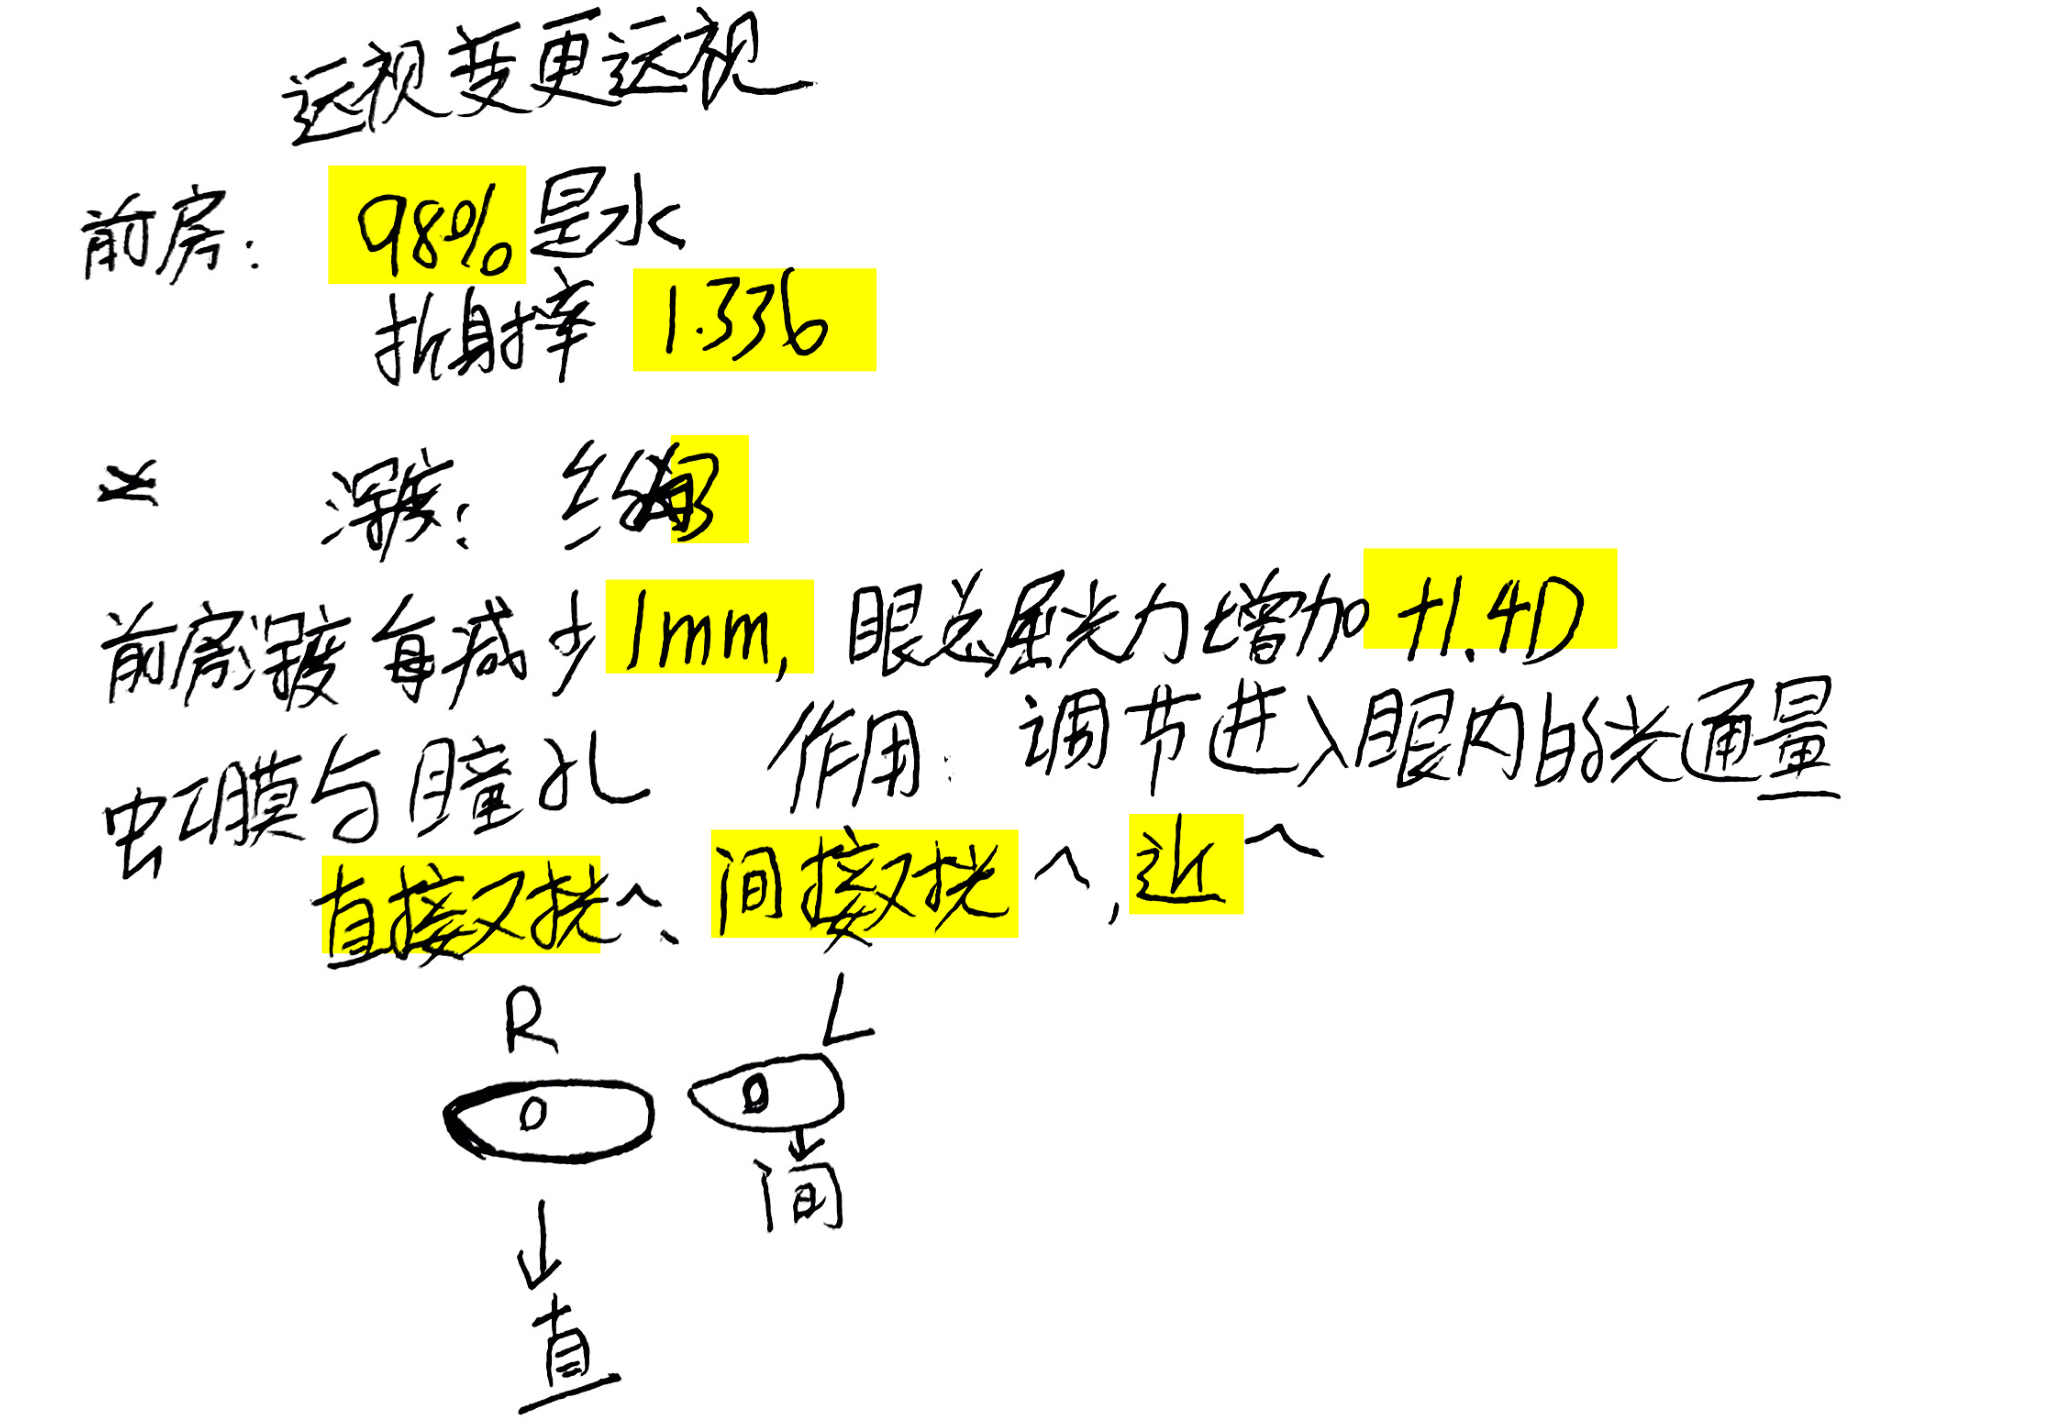 远视变更远视
前房: 98%是水
折射率 1.336
* 深度: 约 3
前房深度每减少1mm, 眼总屈光力增加+1.4D
虹膜与瞳孔 作用: 调节进入眼内的光通量
直接对光~、间接对光~, 近~
R L
间
直